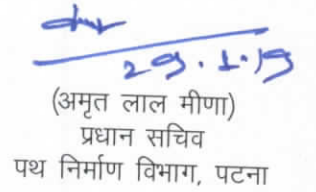 29.1.19
(अमृत लाल मीणा)
प्रधान सचिव
पथ निर्माण विभाग, पटना